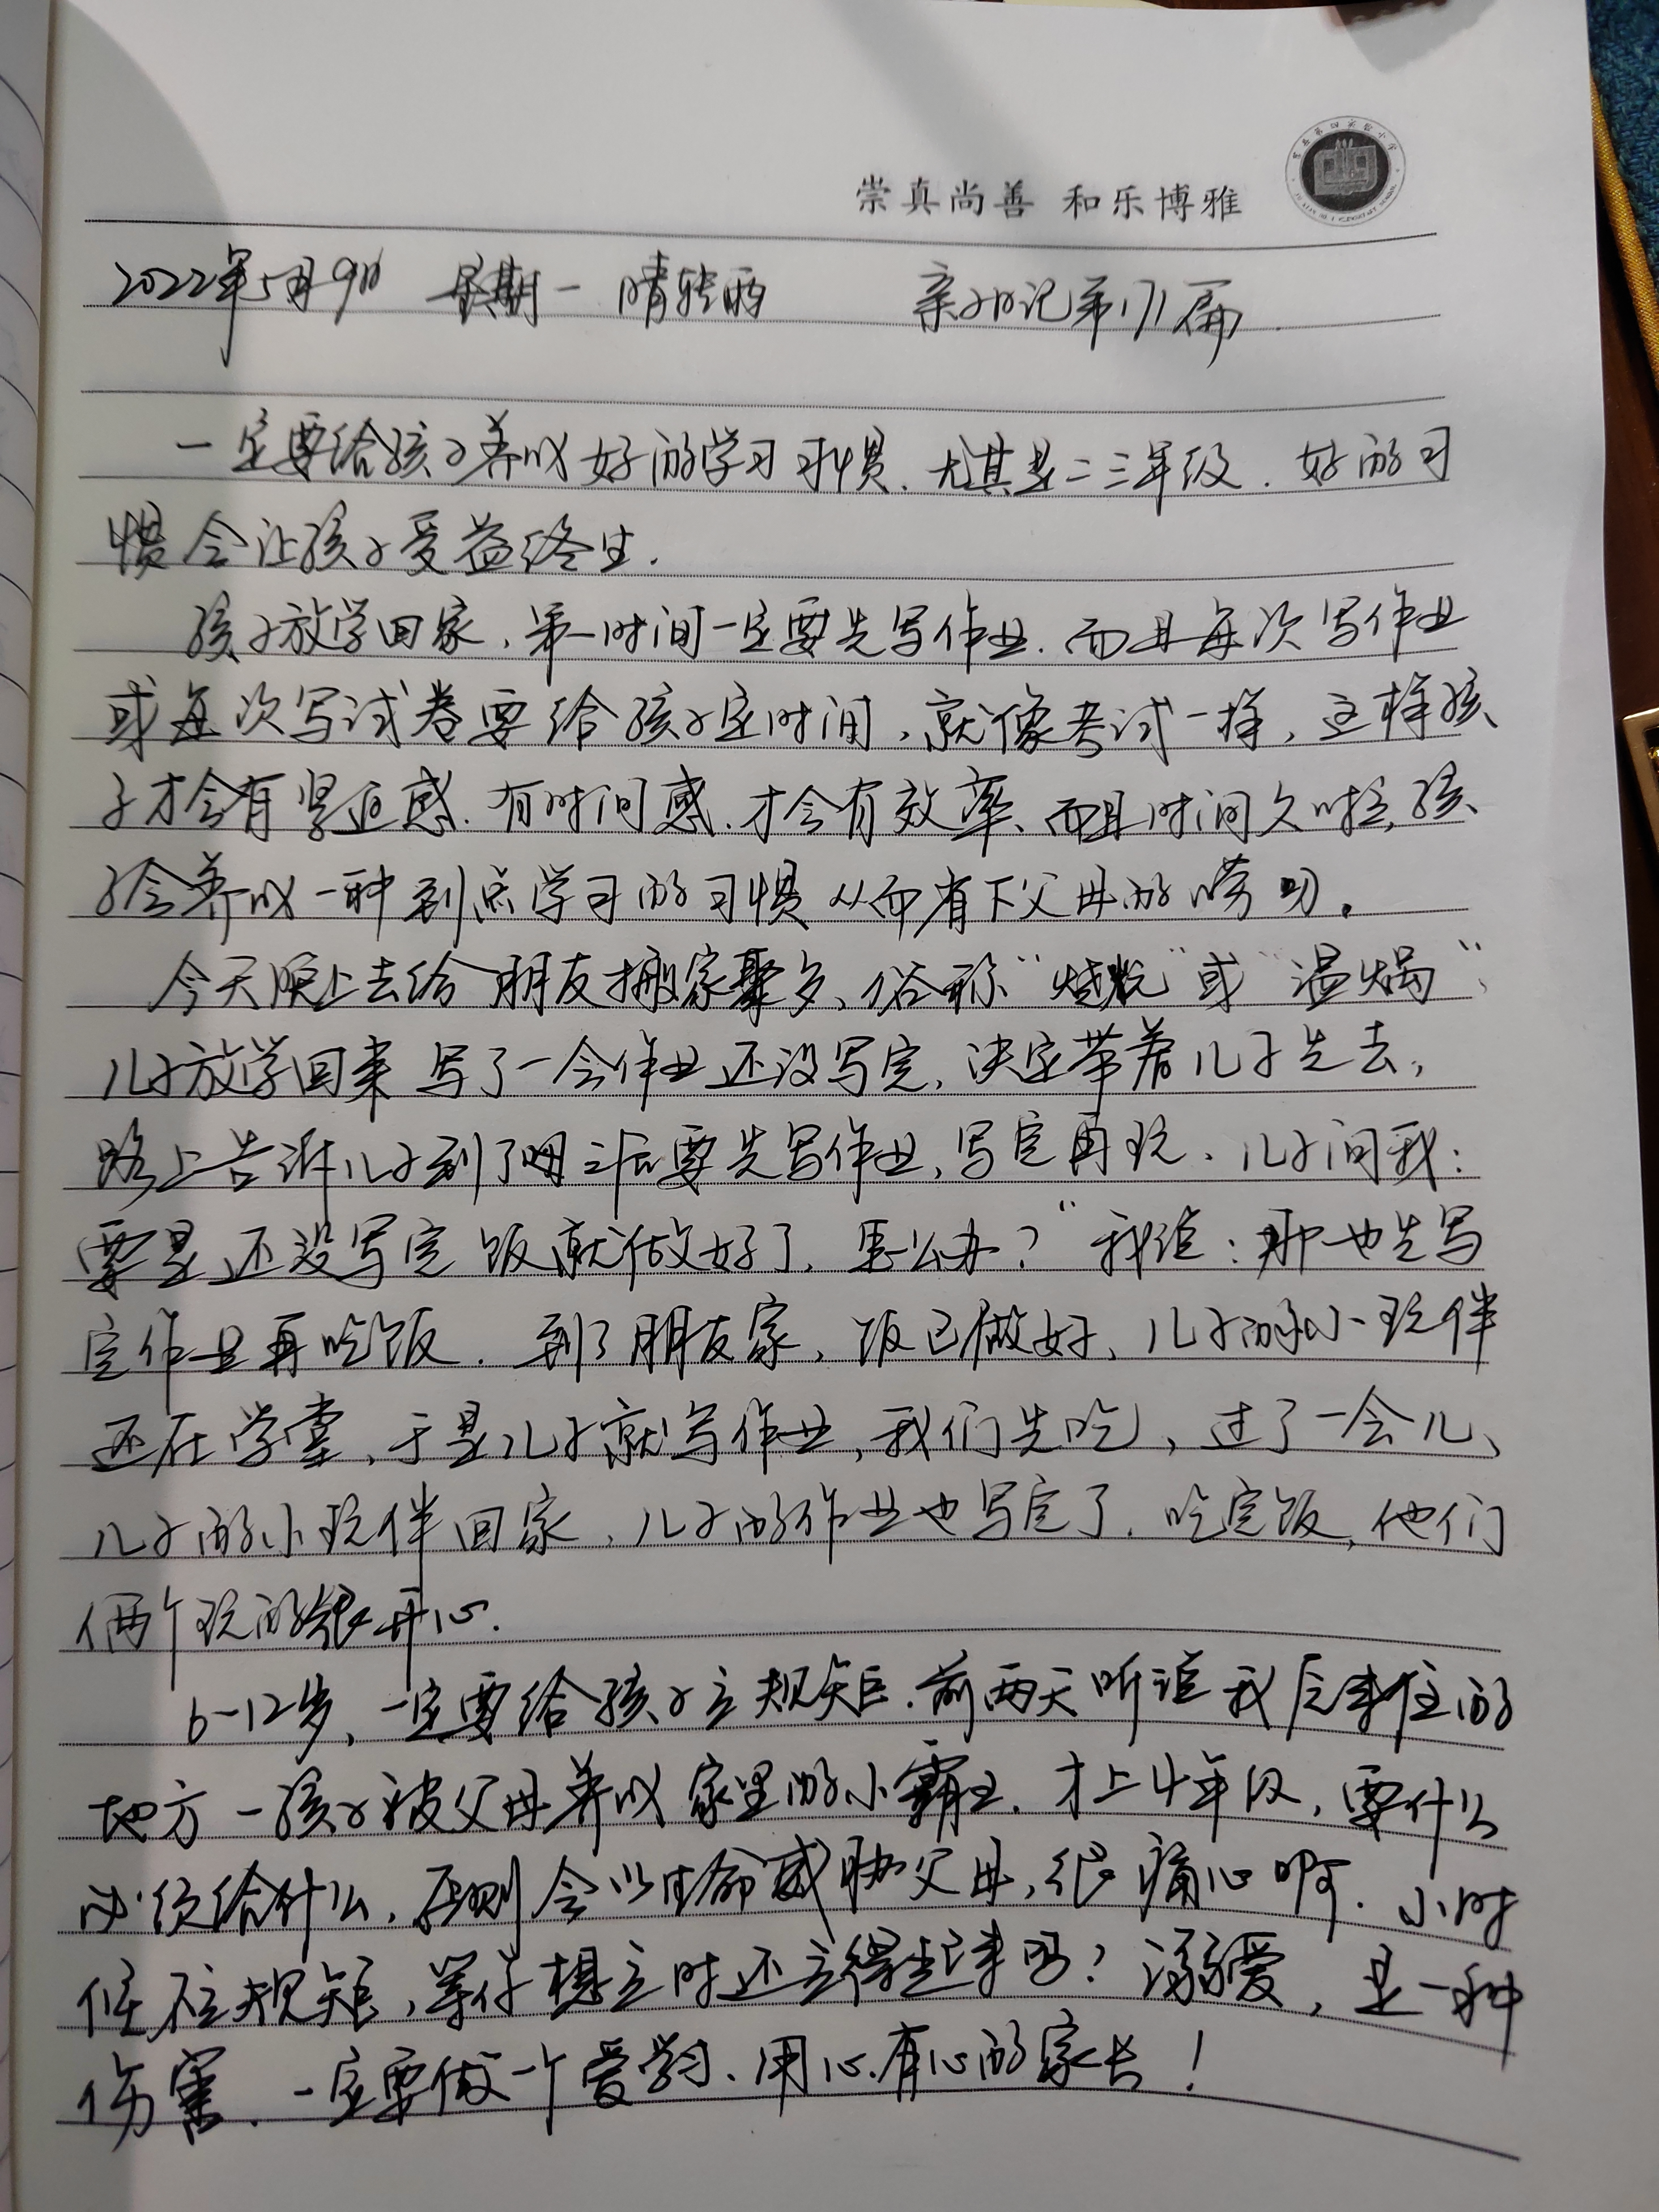 崇真尚善 和乐博雅
2022年5月9日 星期一 晴转雨 亲子日记第171篇
一定要给孩子养成好的学习习惯.尤其是二三年级.好的习
惯会让孩子受益终生.
孩子放学回家,第一时间一定要先写作业.而且每次写作业
或每次写试卷要给孩子定时间,就像考试一样,这样孩
子才会有紧迫感.有时间感.才会有效率、而且时间久啦,孩
子会养成一种到点学习的习惯从而省下父母的唠叨。
今天晚上去给朋友搬家聚多、俗称“燎炕”或“温锅”、
儿子放学回来写了一会作业还没写完,决定带着儿子先去,
路上告诉儿子到了之后要先写作业,写完再玩、儿子问我:
要是还没写完饭就做好了,怎么办?”我说:那也先写
完作业再吃饭.到了朋友家,饭已做好、儿子的小玩伴
还在学堂,于是儿子就写作业,我们先吃,过了一会儿、
儿子的小玩伴回家,儿子的作业也写完了.吃完饭,他们
俩个玩的很开心.
6-12岁,一定要给孩子立规矩.前两天听说我后来住的
地方一孩子被父母养成家里的小霸王.才上4年级,要什么
必须给什么,否则会以生命威胁父母,很痛心啊.小时
候不立规矩,等你想立时还立得起来吗?溺爱,是一种
伤害.一定要做一个爱学习、用心.有心的家长!